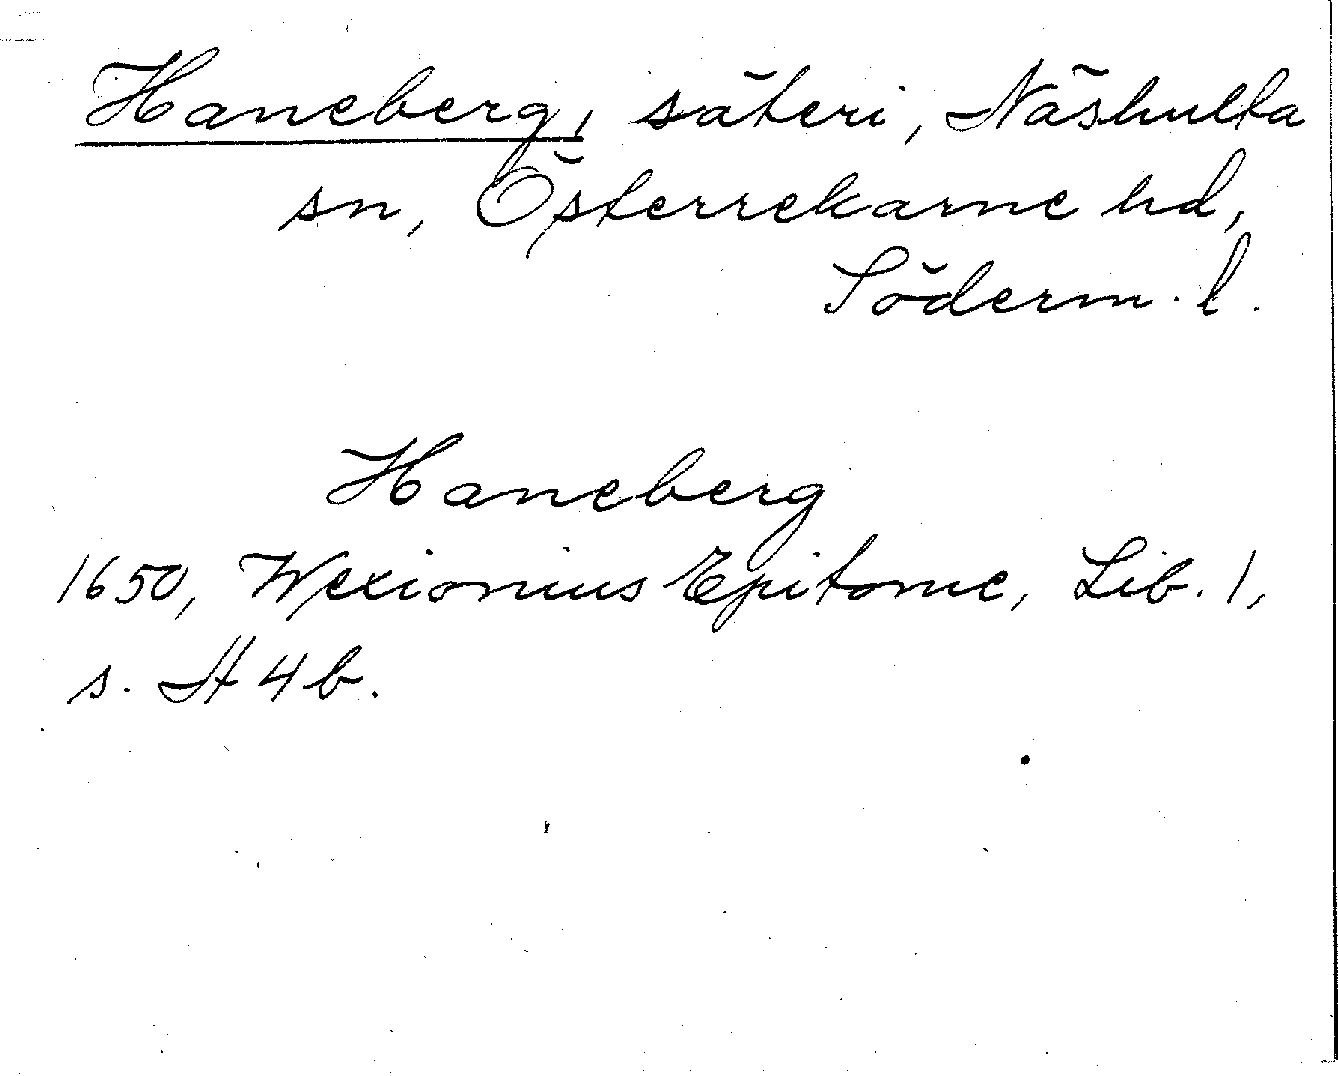 Haneberg, säteri, Näshulta
sn, Österrekarne hd,
Söderm. l.
Haneberg
1650, Wexionius Epitome, Lib. 1,
s. H 4 b.